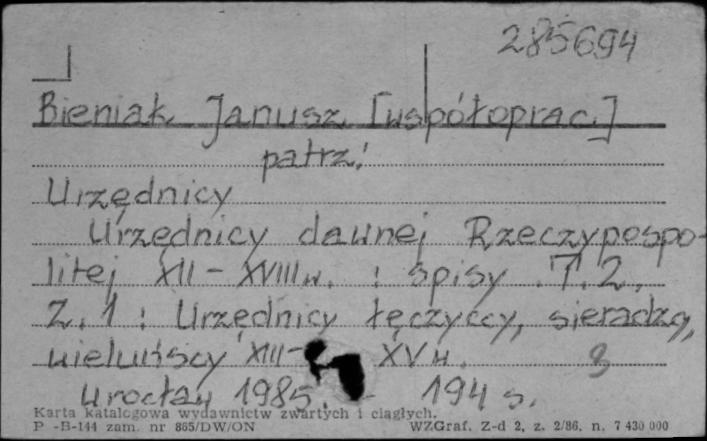 285694
Bieniak Janusz [współoprac.]
patrz:
Urzędnicy
Urzędnicy dawnej Rzeczypospo-
litej XII - XVIII w. : spisy . T. 2,
Z. 1 : Urzędnicy łęczyccy, sieradzcy,
wieluńscy XIII- XV w. 8
Wrocław 1985. - 194 s.
Karta katalogowa wydawnictw zwartych i ciągłych.
P -B-144 zam. nr 865/DW/ON WZGraf. Z-d 2, z. 2/86. n. 7 430 000